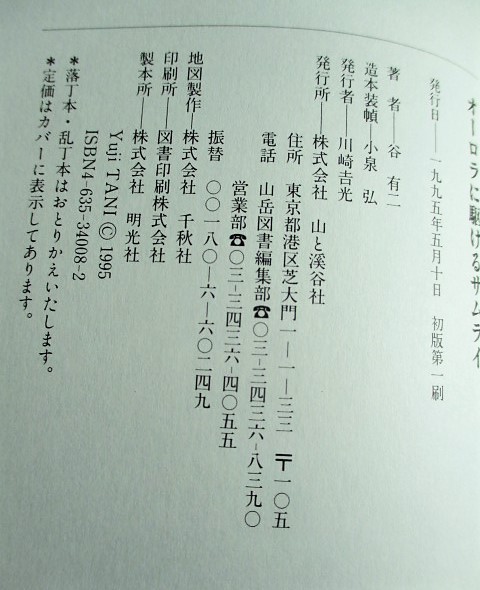 オーロラに駆けるサムライ
発行日――一九九五年五月十日　初版第一刷
著　者――谷　有二
造本装幀――小泉　弘
発行者――川崎吉光
発行所――株式会社　山と溪谷社
住所　東京都港区芝大門一―一―三三　〒一〇五
電話　山岳図書編集部☎〇三―三四三六―八三九〇
営業部☎〇三―三四三六―四〇五五
振替　〇〇一八〇―六―六〇二四九
地図製作――株式会社　千秋社
印刷所――図書印刷株式会社
製本所――株式会社　明光社
Yuji TANI © 1995
ISBN4-635-34008-2
＊落丁本・乱丁本はおとりかえいたします。
＊定価はカバーに表示してあります。